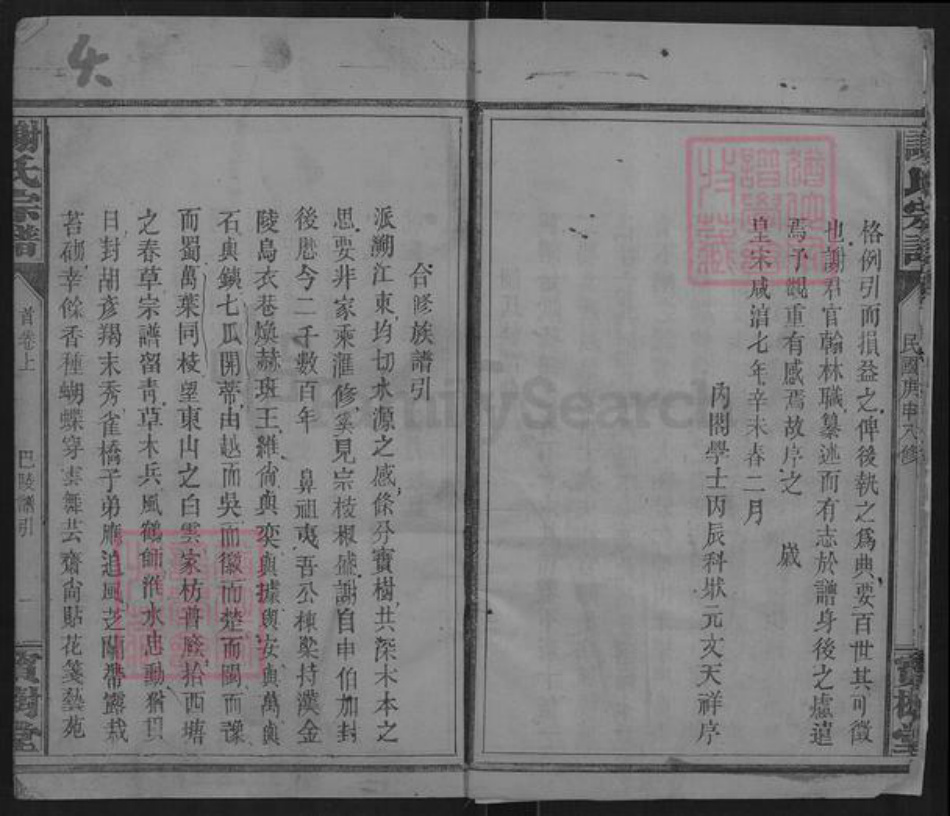 謝氏宗譜
民國庚申八修
寶樹堂
格例引而損益之俾後執之為典要百世其可徵
也謝君官翰林職纂述而有志於譜身後之慮遠
焉予觀重有感焉故序之　歲
皇宋咸淳七年辛未春二月
內閣學士丙辰科狀元文天祥序
合修族譜引
派溯江東均切水源之感條分寶樹共深木本之
思要非家乘滙修奚見宗枝椒盛謝自申伯加封
後歷今二千數百年　鼻祖夷吾公棟梁持漢金
陵烏衣巷煥赫班王維尚與奕與據與安與萬與
石與鐵七瓜開蒂由越而吳而徽而楚而閩而豫
而蜀萬葉同枝望東山之白雲家枋普廕拾西塘
之春草宗譜留青草木兵風鶴師淮水忠動猶
日封胡彥羯末秀雀橋子弟應追風芝蘭帶露栽
苔砌幸餘香種蝴蝶穿雲舞芸齋尚貼花箋藝苑
謝氏宗譜
首卷上
巴陵譜引
一
寶樹堂
FamilySearch